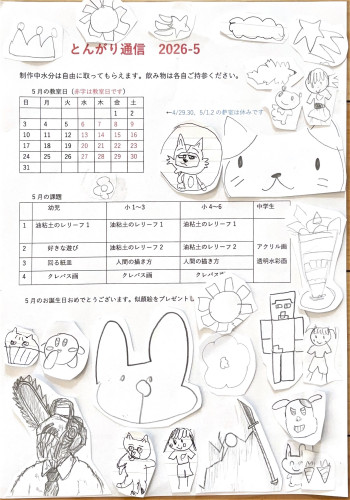 とんがり通信　2026-5
制作中水分は自由に取ってもらえます。飲み物は各自ご持参ください。
５月の教室日（赤字は教室日です）
日 月 火 水 木 金 土
1 2
3 4 5 6 7 8 9
←4/29.30、5/1.2の教室は休みです
10 11 12 13 14 15 16
17 18 19 20 21 22 23
24 25 26 27 28 29 30
31
５月の課題
幼児 小１~３ 小４~６ 中学生
1 油粘土のレリーフ１ 油粘土のレリーフ１ 油粘土のレリーフ１
2 好きな遊び 油粘土のレリーフ２ 油粘土のレリーフ２ アクリル画
3 回る紙皿 人間の描き方 人間の描き方 透明水彩画
4 クレパス画 クレパス画 クレパス画
５月のお誕生日おめでとうございます。似顔絵をプレゼントし